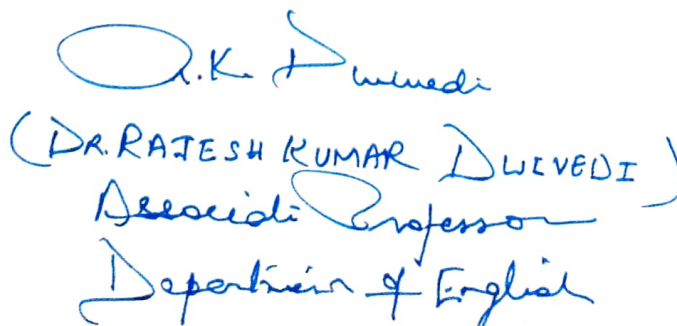 R.K. Dwivedi
(DR. RAJESH KUMAR DWIVEDI)
Associate Professor
Department of English